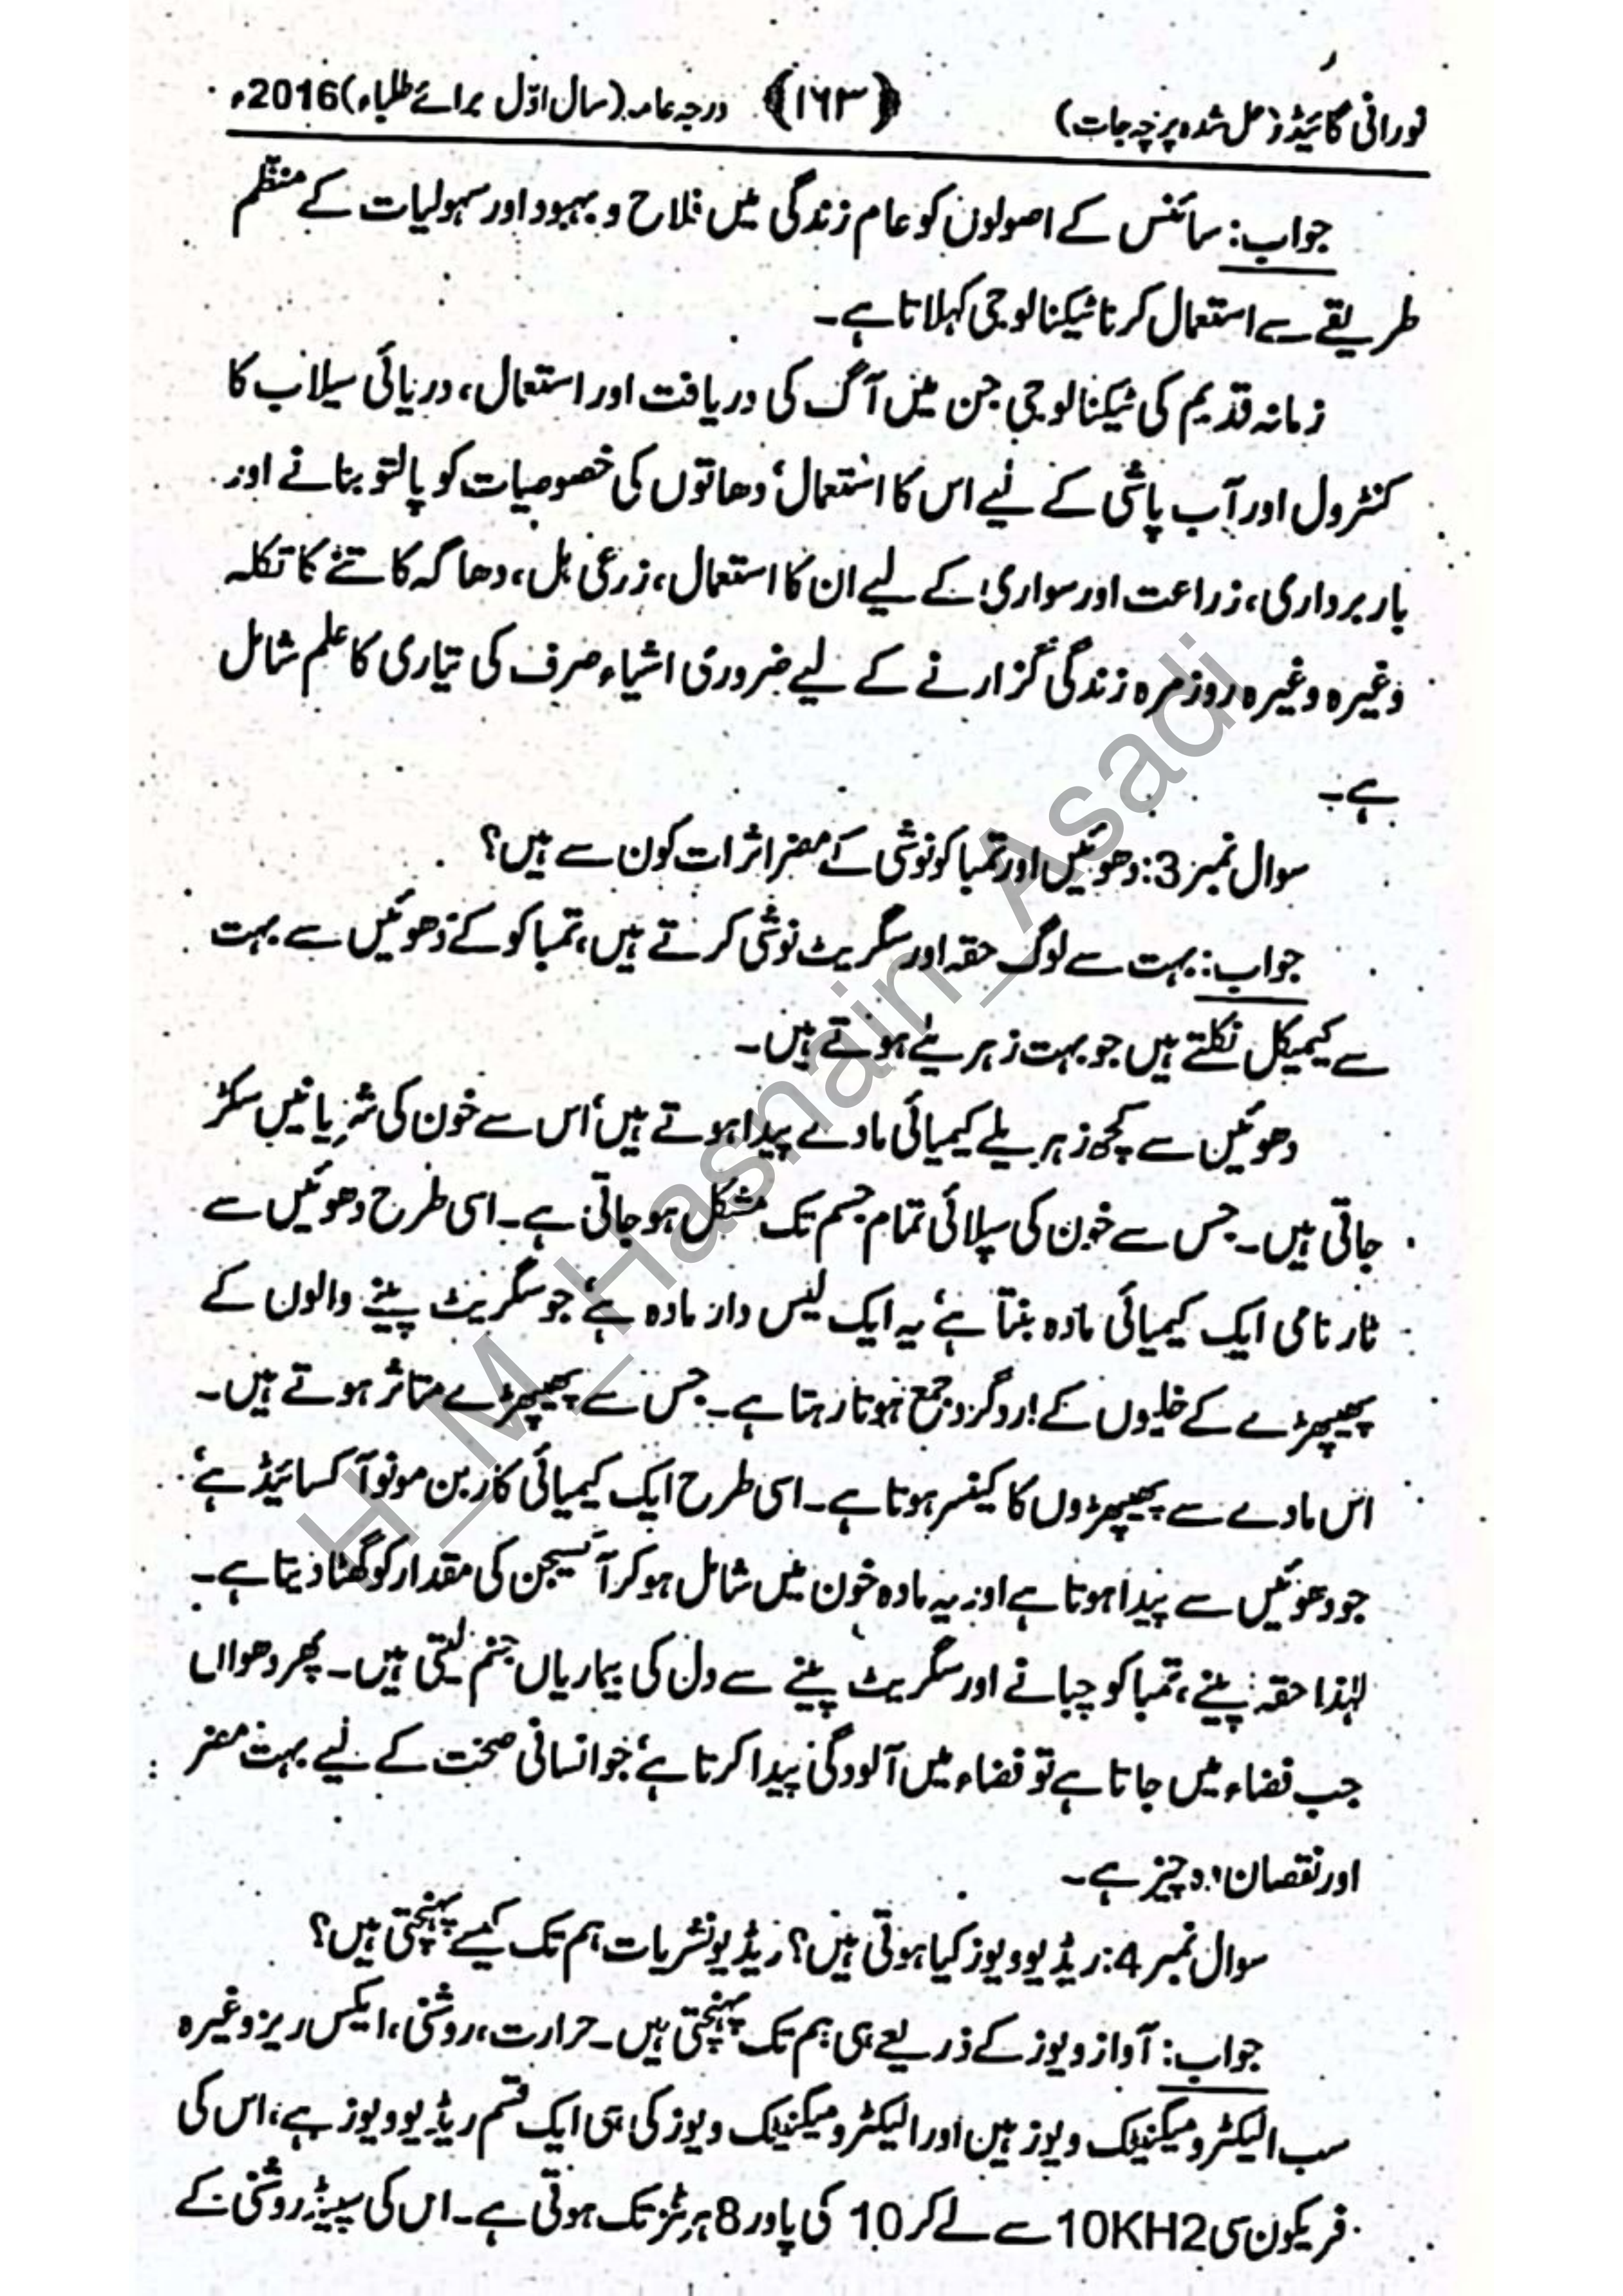 نورانی گائیڈ (حل شدہ پرچہ جات) ﴿۱۶۳﴾ درجہ عامہ (سال اوّل برائے طلباء) 2016ء
جواب: سائنس کے اصولوں کو عام زندگی میں فلاح و بہبود اور سہولیات کے منظّم
طریقے سے استعمال کرنا ٹیکنالوجی کہلاتا ہے۔
زمانہ قدیم کی ٹیکنالوجی جن میں آگ کی دریافت اور استعمال، دریائی سیلاب کا
کنٹرول اور آب پاشی کے لیے اس کا استعمال، دھاتوں کی خصوصیات کو پالتو بنانے اور
بار برداری، زراعت اور سواری کے لیے ان کا استعمال، زرعی ہل، دھاگہ کاتنے کا تکلہ
وغیرہ وغیرہ روزمرہ زندگی گزارنے کے لیے ضروری اشیاء صرف کی تیاری کا علم شامل
ہے۔
سوال نمبر 3: دھوئیں اور تمباکو نوشی کے مضر اثرات کون سے ہیں؟
جواب: بہت سے لوگ حقہ اور سگریٹ نوشی کرتے ہیں، تمباکو کے دھوئیں سے بہت
سے کیمیکل نکلتے ہیں جو بہت زہریلے ہوتے ہیں۔
دھوئیں سے کچھ زہریلے کیمیائی مادے پیدا ہوتے ہیں، اس سے خون کی شریانیں سکڑ
جاتی ہیں۔ جس سے خون کی سپلائی تمام جسم تک مشکل ہو جاتی ہے۔ اسی طرح دھوئیں سے
ٹار نامی ایک کیمیائی مادہ بنتا ہے، یہ ایک لیس دار مادہ ہے، جو سگریٹ پینے والوں کے
پھیپھڑے کے خلیوں کے اردگرد جمع ہوتا رہتا ہے۔ جس سے پھیپھڑے متاثر ہوتے ہیں۔
اس مادے سے پھیپھڑوں کا کینسر ہوتا ہے۔ اسی طرح ایک کیمیائی کاربن مونوآکسائیڈ ہے،
جو دھوئیں سے پیدا ہوتا ہے اور یہ مادہ خون میں شامل ہو کر آکسیجن کی مقدار کو گھٹا دیتا ہے۔
لہٰذا حقہ پینے، تمباکو چبانے اور سگریٹ پینے سے دل کی بیماریاں جنم لیتی ہیں۔ پھر دھواں
جب فضاء میں جاتا ہے تو فضاء میں آلودگی پیدا کرتا ہے، جو انسانی صحت کے لیے بہت مضر
اور نقصان دہ چیز ہے۔
سوال نمبر 4: ریڈیو ویوز کیا ہوتی ہیں؟ ریڈیو نشریات ہم تک کیسے پہنچتی ہیں؟
جواب: آواز ویوز کے ذریعے ہی ہم تک پہنچتی ہیں۔ حرارت، روشنی، ایکس ریز وغیرہ
سب الیکٹرومیگنیٹک ویوز ہیں اور الیکٹرومیگنیٹک ویوز کی ہی ایک قسم ریڈیو ویوز ہے، اس کی
فریکونسی 10KH2 سے لے کر 10 کی پاور 8 ہرٹز تک ہوتی ہے۔ اس کی سپیڈ روشنی کے
H_M_Hasnain_Asadi